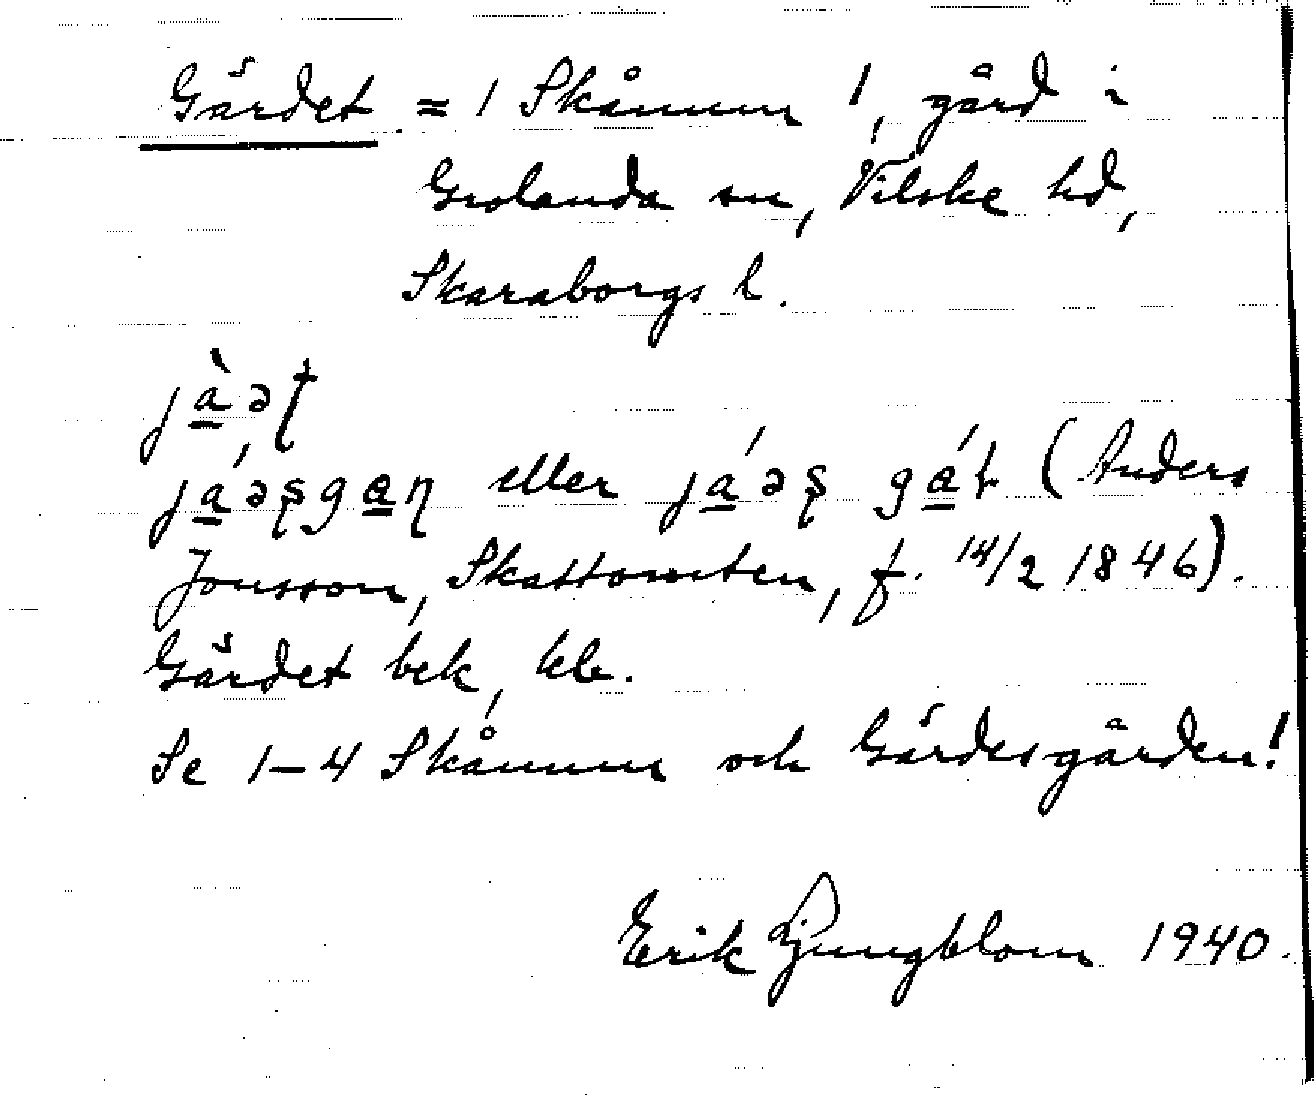 Gärdet = 1 Skånum 1, gård i
Grolanda sn, Vilske hd,
Skaraborgs l.
jàət
já̱əʂga̱ɳ eller já̱əʂ gá̱ŧ (Anders
Jonsson, Skattomten, f. 14/2 1846).
Gärdet bek, kb.
Se 1–4 Skånum och Gärdesgården!
Erik Ljungblom 1940.